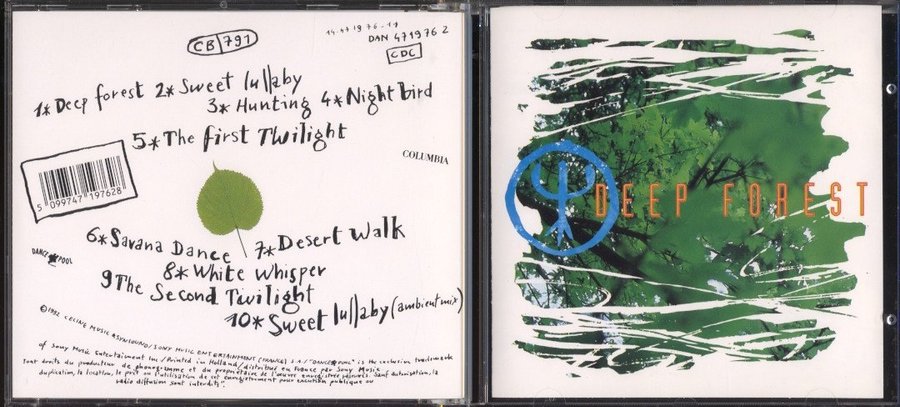 CB/791
14-471976-17
DAN 471976 2
CDC
1* Deep forest 2* Sweet lullaby
3* Hunting 4* Night bird
5* The first Twilight
COLUMBIA
5 099747 197628
6* Savana Dance 7* Desert Walk
8* White Whisper
9 The Second Twilight
10* Sweet lullaby (ambient mix)
DANCE POOL
©1992 CELINE MUSIC &SYNSOUND/SONY MUSIC ENTERTAINMENT (FRANCE) S.A./"DANCE POOL" is the exclusive trademark
of Sony Music Entertainment Inc/Printed in Holland/distribué en France par Sony Music
Tous droits du producteur de phonogramme et du propriétaire de l'œuvre enregistrée réservés. Sauf autorisation, la
duplication, la location, le prêt ou l'utilisation de cet enregistrement pour exécution publique ou
radio diffusion sont interdits.
DEEP FOREST